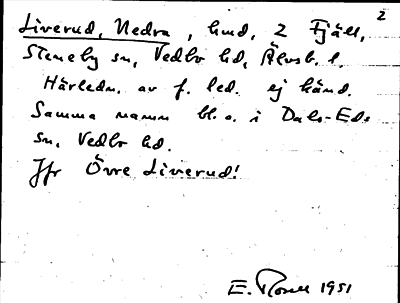 2
Liverud, Nedra, hmd, 2 Fjäll,
Steneby sn, Vedbo hd, Älvsb. l.
Härledn. av f. led. ej känd.
Samma namn bl. a. i Dals-Eds
sn, Vedbo hd.
Jfr Övre Liverud!
E. Rosell 1951